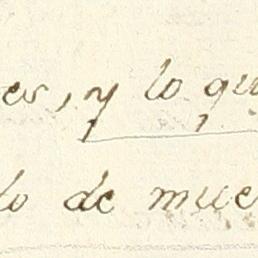 es, y lo qu
do de mue